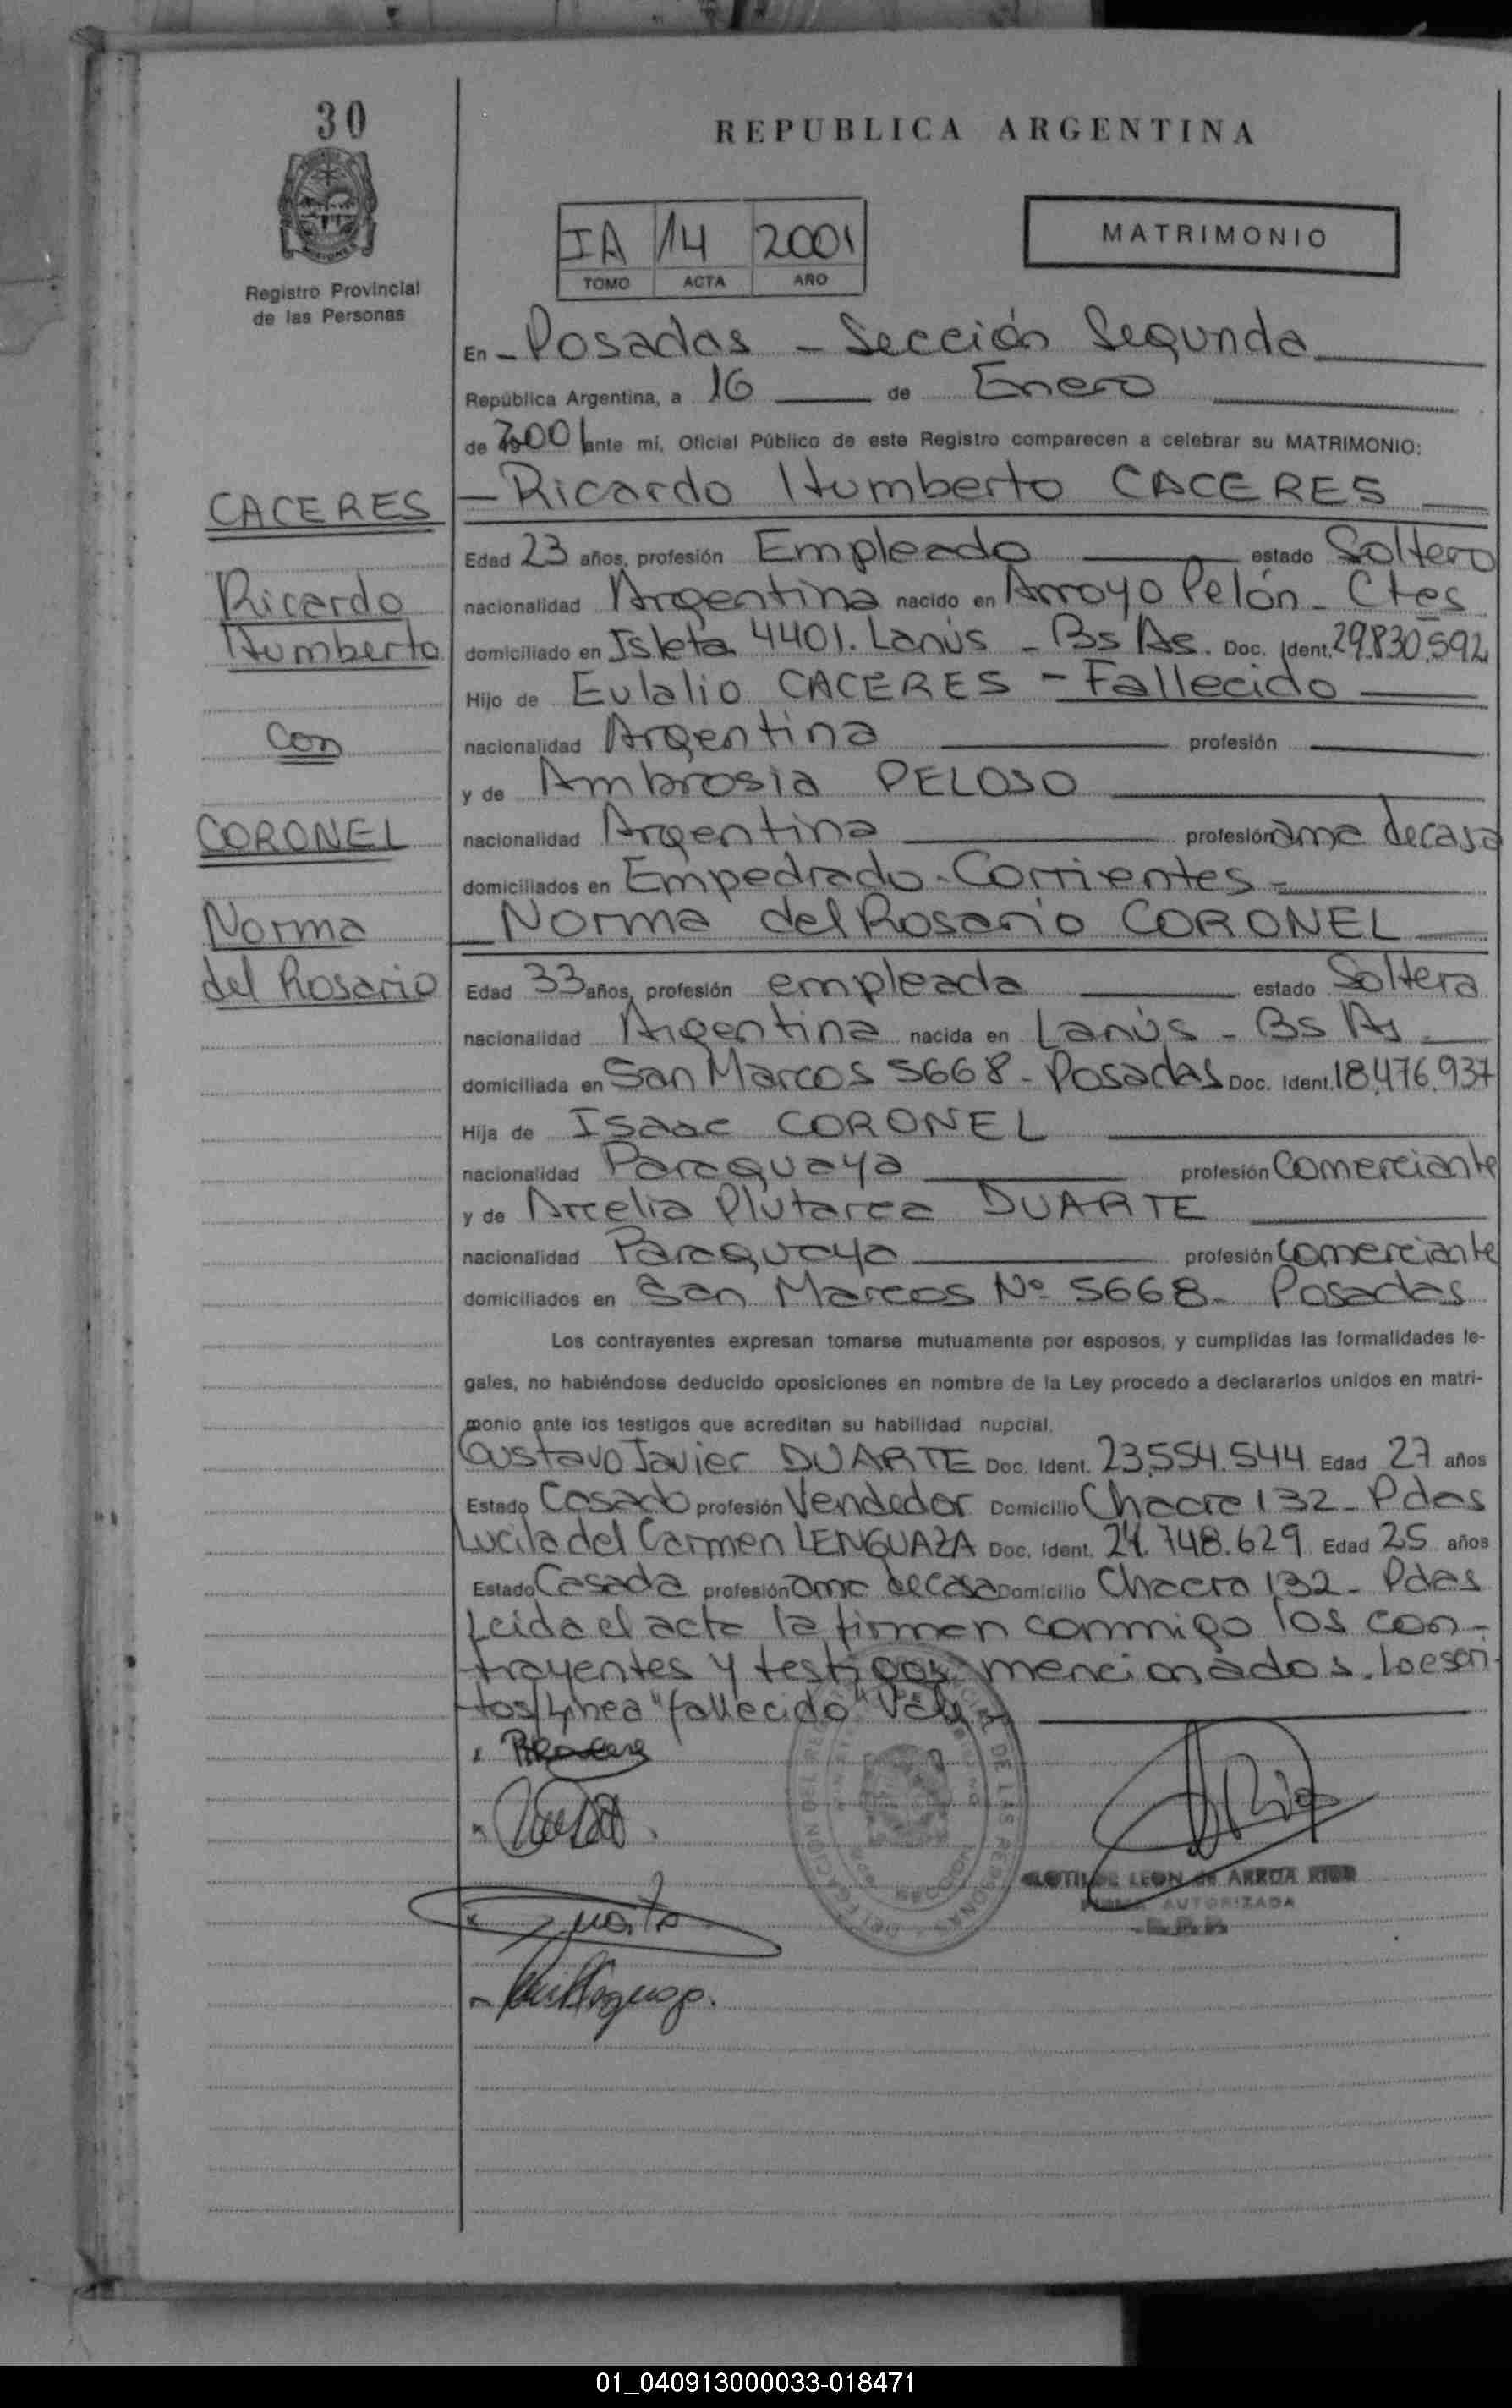 30
REPUBLICA ARGENTINA
IA 14 2001
TOMO ACTA AÑO
MATRIMONIO
Registro Provincial
de las Personas
En - Posadas - Sección Segunda
República Argentina, a 16 de Enero
de 2001 ante mí, Oficial Público de este Registro comparecen a celebrar su MATRIMONIO:
CACERES
Ricardo
Humberto
con
CORONEL
Norma
del Rosario
- Ricardo Humberto CACERES
Edad 23 años, profesión Empleado estado Soltero
nacionalidad Argentina nacido en Arroyo Pelón - Ctes
domiciliado en Isleta 4401. Lanús - Bs As. Doc. Ident. 29.830.592
Hijo de Eulalio CACERES - Fallecido
nacionalidad Argentina profesión
y de Ambrosia PELOSO
nacionalidad Argentina profesión ama de casa
domiciliados en Empedrado - Corrientes -
Norma del Rosario CORONEL
Edad 33 años, profesión empleada estado Soltera
nacionalidad Argentina nacida en Lanús - Bs As
domiciliada en San Marcos 5668 - Posadas Doc. Ident. 18.476.937
Hija de Isaac CORONEL
nacionalidad Paraguaya profesión Comerciante
y de Arcelia Plutarca DUARTE
nacionalidad Paraguaya profesión Comerciante
domiciliados en San Marcos Nº 5668 - Posadas
Los contrayentes expresan tomarse mutuamente por esposos, y cumplidas las formalidades le-
gales, no habiéndose deducido oposiciones en nombre de la Ley procedo a declararlos unidos en matri-
monio ante los testigos que acreditan su habilidad nupcial.
Gustavo Javier DUARTE Doc. Ident. 23.554.544 Edad 27 años
Estado Casado profesión Vendedor Domicilio Chacra 132 - Pdas
Lucila del Carmen LENGUAZA Doc. Ident. 24.748.629 Edad 25 años
Estado Casada profesión ama de casa Domicilio Chacra 132 - Pdas
Leida el acta la firman conmigo los con-
trayentes y testigos mencionados. Lo escri-
to s/ línea "fallecido" Vale
CLOTILDE LEON de ARRUA
FIRMA AUTORIZADA
01_040913000033-018471